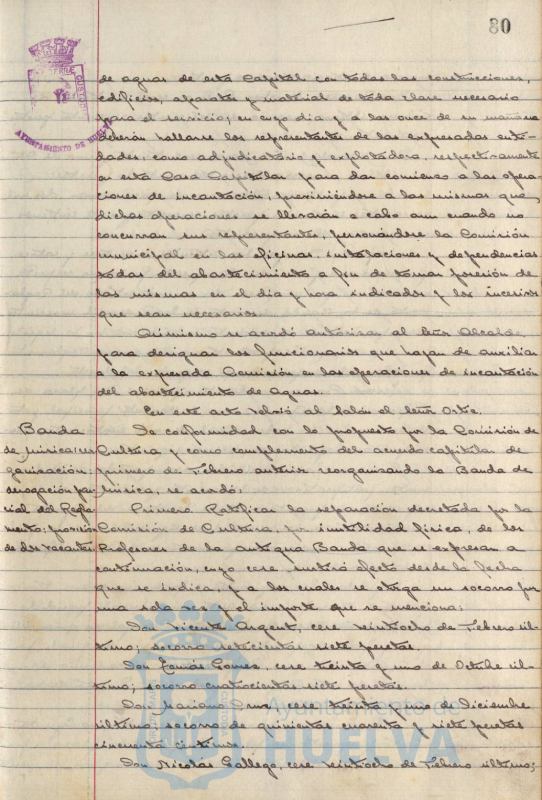 80
AYUNTAMIENTO DE HUELVA
de aguas de esta Capital con todas las construcciones,
edificios, aparatos y material de toda clase necesario
para el servicio; en cuyo dia y a las once de su mañana
deberán hallarse los representantes de las expresadas enti-
dades, como adjudicataria y explotadora, respectivamente
en esta Casa Capitular para dar comienzo a las opera-
ciones de incautación, previniéndose a las mismas que
dichas operaciones se llevarán a cabo aun cuando no
concurran sus representantes, personándose la Comisión
municipal en las oficinas, instalaciones y dependencias
todas del abastecimiento a fin de tomar posesión de
las mismas en el dia y hora indicados y los
que sean necesarios.
Asimismo se acordó autorizar al Señor Alcalde
para designar los funcionarios que hayan de auxiliar
a la expresada Comisión en las operaciones de incautación
del abastecimiento de aguas.
En este acto volvió al Salón el Señor Ortiz.
Banda
de música: reor
ganización
derogación par-
cial del Regla-
mento; provisión
de dos vacantes
De conformidad con lo propuesto por la Comisión de
Cultura y como complemento del acuerdo capitular de
primero de Febrero anterior reorganizando la Banda de
Música, se acordó:
Primero Ratificar la separación decretada por la
Comisión de Cultura, por inutilidad física, de los
Profesores de la antigua Banda que se expresan a
continuación, cuyo cese, surtirá efecto desde la fecha
que se indica, y a los cuales se otorga un socorro por
una sola vez y el importe que se menciona:
Don Vicente Argent, cese veintiocho de Febrero úl-
timo; socorro setecientas siete pesetas.
Don Tomás Gomez, cese treinta y uno de Octubre úl-
timo; socorro cuatrocientas siete pesetas.
Don Mariano cese treinta y uno de Diciembre
último; socorro de quinientas cuarenta y siete pesetas
cincuenta céntimos.
Don Nicolás Gallego, cese veintiocho de Febrero último;
Ayuntamiento de
HUELVA